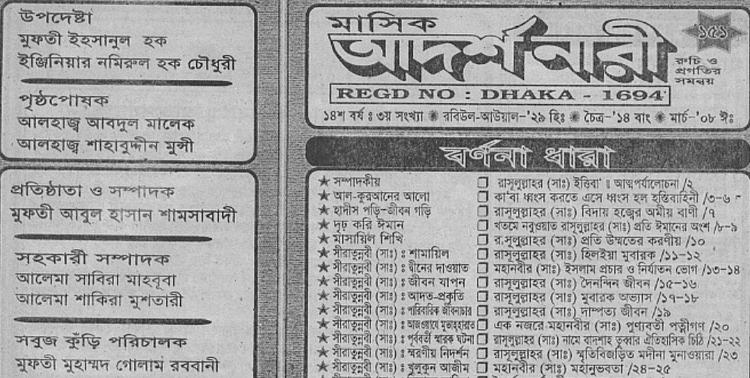 উপদেষ্টা
মুফতী ইহসানুল হক
ইঞ্জিনিয়ার নমিরুল হক চৌধুরী
পৃষ্ঠপোষক
আলহাজ্ব আবদুল মালেক
আলহাজ্ব শাহাবুদ্দীন মুন্সী
প্রতিষ্ঠাতা ও সম্পাদক
মুফতী আবুল হাসান শামসাবাদী
সহকারী সম্পাদক
আলেমা সাবিরা মাহবূবা
আলেমা শাকিরা মুশতারী
সবুজ কুঁড়ি পরিচালক
মুফতী মুহাম্মদ গোলাম রববানী
মাসিক
আদর্শ নারী
১৫১
রুচি ও
প্রগতির
সমন্বয়
REGD NO : DHAKA - 1694
১৪শ বর্ষ : ৩য় সংখ্যা ✺ রবিউল-আউয়াল-'২৯ হিঃ ✺ চৈত্র-'১৪ বাং ✺ মার্চ-'০৮ ঈঃ
বর্ণনা ধারা
★ সম্পাদকীয় ❐ রাসূলুল্লাহর (সাঃ) ইত্তিবা' : আত্মপর্যালোচনা /২
★ আল-কুরআনের আলো ❐ কা'বা ধ্বংস করতে এসে ধ্বংস হল হস্তিবাহিনী /৩-৬
★ হাদীস পড়ি-জীবন গড়ি ❐ রাসূলুল্লাহর (সাঃ) বিদায় হজ্বের অমীয় বাণী /৭
★ দৃঢ় করি ঈমান ❐ খতমে নবুওয়াত রাসূলুল্লাহর (সাঃ) প্রতি ঈমানের অংশ /৮-৯
★ মাসায়িল শিখি ❐ র.সূলুল্লাহর (সাঃ) প্রতি উম্মতের করণীয় /১০
★ সীরাতুন্নবী (সাঃ) : শামায়িল ❐ রাসূলুল্লাহর (সাঃ) হিলইয়া মুবারক /১১-১২
★ সীরাতুন্নবী (সাঃ) : দ্বীনের দাওয়াত ❐ মহানবীর (সাঃ) ইসলাম প্রচার ও নির্যাতন ভোগ /১৩-১৪
★ সীরাতুন্নবী (সাঃ) : জীবন যাপন ❐ রাসূলুল্লাহর (সাঃ) দৈনন্দিন জীবন /১৫-১৬
★ সীরাতুন্নবী (সাঃ) : আদত-প্রকৃতি ❐ রাসূলুল্লাহর (সাঃ) মুবারক অভ্যাস /১৭-১৮
★ সীরাতুন্নবী (সাঃ) : পারিবারিক জীবনাচার ❐ রাসূলুল্লাহর (সাঃ) দাম্পত্য জীবন /১৯
★ সীরাতুন্নবী (সাঃ) : আজওয়াজে মুতাহ্হারাত ❐ এক নজরে মহানবীর (সাঃ) পুণ্যবতী পত্নীগণ /২০
★ সীরাতুন্নবী (সাঃ) : পূর্ববর্তী স্মারক ঘটনা ❐ রাসূলুল্লাহর (সাঃ) নামে বাদশাহ তুব্বার ঐতিহাসিক চিঠি /২১-২২
★ সীরাতুন্নবী (সাঃ) : স্মরণীয় নিদর্শন ❐ রাসূলুল্লাহর (সাঃ) স্মৃতিবিজড়িত মদীনা মুনাওয়ারা /২৩
★ সীরাতুন্নবী (সাঃ) : খুলুকুন আজীম ❐ মহানবীর (সাঃ) মহানুভবতা /২৪-২৫